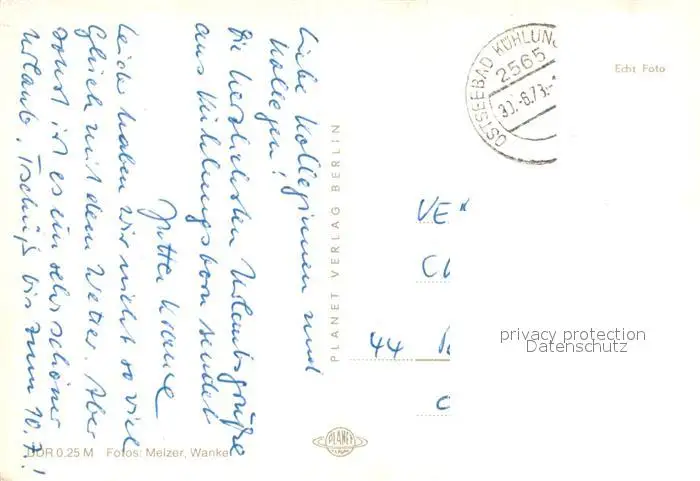 Liebe Kolleginnen und
Kollegen!
Die herzlichsten Urlaubsgrüße
aus Kühlungsborn sendet
Jutta
Leider haben wir nicht so viel
Glück mit dem Wetter. Aber
sonst ist es ein sehr schöner
Urlaub. Tschüß bis zum 10.7.!
PLANET VERLAG BERLIN
OSTSEEBAD KÜHLUN
2565
Echt Foto
VE
44
privacy protection
Datenschutz
PLANET
DDR 0.25 M Fotos: Melzer, Wanke